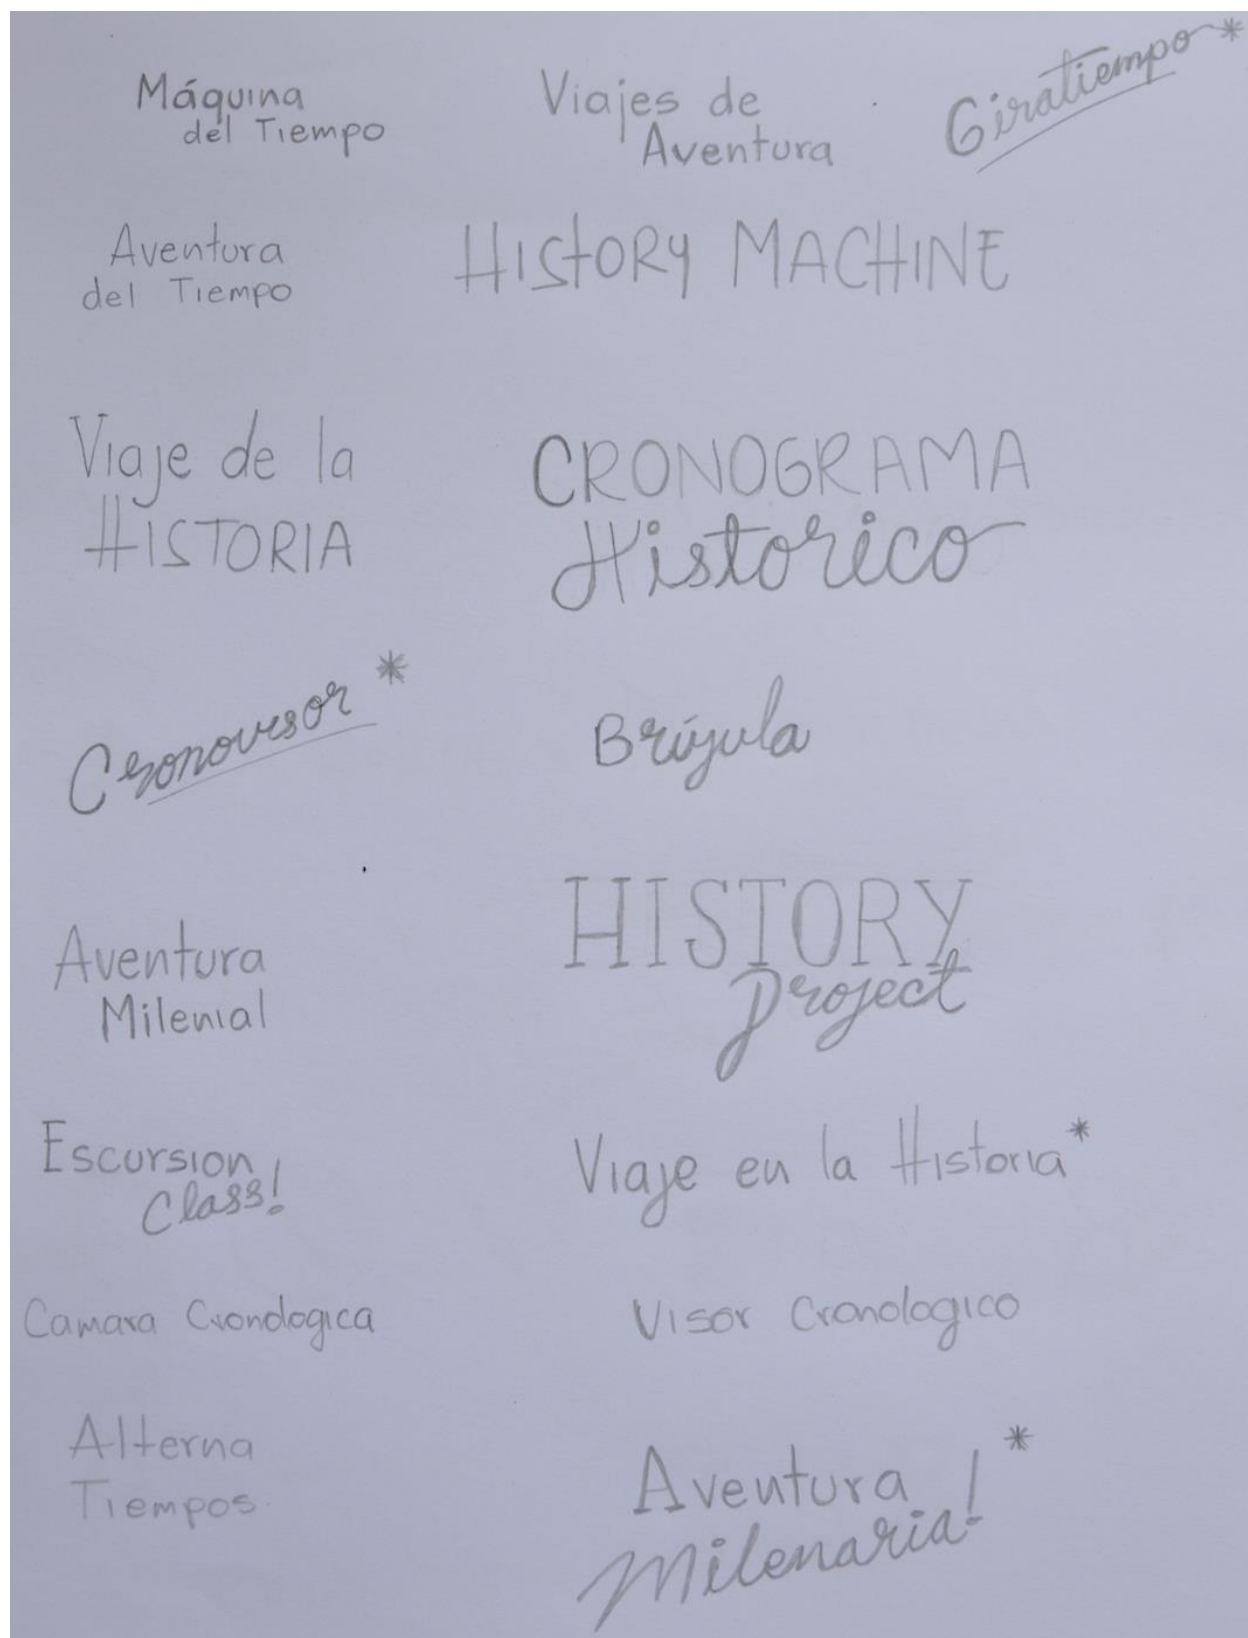 Máquina
del Tiempo
Viajes de
Aventura
Giratiempo *
Aventura
del Tiempo
HIStORY MACHINE
Viaje de la
HISTORIA
CRONOGRAMA
Historico
Cronovisor *
Brújula
Aventura
Milenial
HISTORY
Project
Escursion
Class!
Viaje en la Historia*
Camara Cronologica
Visor Cronologico
Alterna
Tiempos
Aventura
Milenaria! *